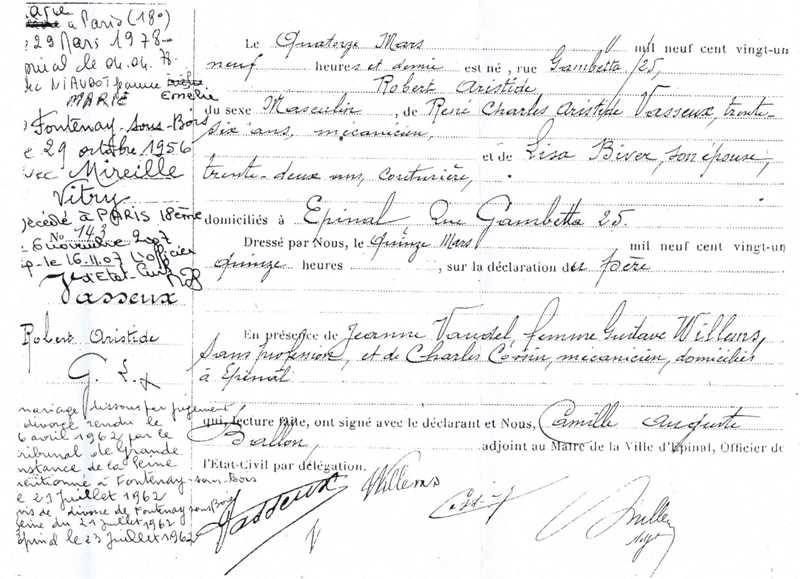 à Paris (18e)
29 Mars 1978
le 04.04.78
NIAUDOT Jeanne
MARIE Emélie
Fontenay-sous-Bois
29 octobre 1956
Mireille
Vitry
Décédé à PARIS 18ème
No 143
6 novembre 2007
le 16.11.07 L'officier
d'Etat-Civil
Vasseux
Robert Aristide
G. L.
mariage dissous par jugement
divorce rendu le
6 avril 1962 par le
Tribunal de Grande
Instance de la Seine
à Fontenay-sous-Bois
le 21 Juillet 1962
de divorce de Fontenay-sous-Bois
Seine du 21 juillet 1962
Epinal le 23 Juillet 1962
Le Quatorze Mars mil neuf cent vingt-un
neuf heures et demie est né, rue Gambetta 25,
Robert Aristide,
du sexe Masculin, de René Charles Aristide Vasseux, trente-
six ans, mécanicien,
et de Lisa Biver, son épouse,
trente-deux ans, couturière,
domiciliés à Epinal, Rue Gambetta 25.
Dressé par Nous, le Quinze Mars mil neuf cent vingt-un
quinze heures, sur la déclaration du père
En présence de Jeanne Vaudel, femme Gustave Willems,
sans profession, et de Charles mécanicien, domiciliés
à Epinal
qui, lecture faite, ont signé avec le déclarant et Nous, Camille Auguste
Ballon, adjoint au Maire de la Ville d'Epinal, Officier de
l'Etat-Civil par délégation.
Vasseux Willems